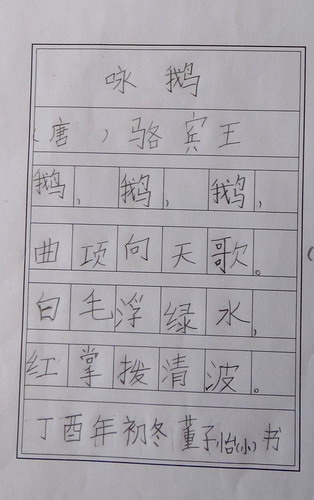 咏鹅
(唐)骆宾王
鹅,鹅,鹅,
曲项向天歌。
白毛浮绿水,
红掌拨清波。
丁酉年初冬 董子怡(小)书